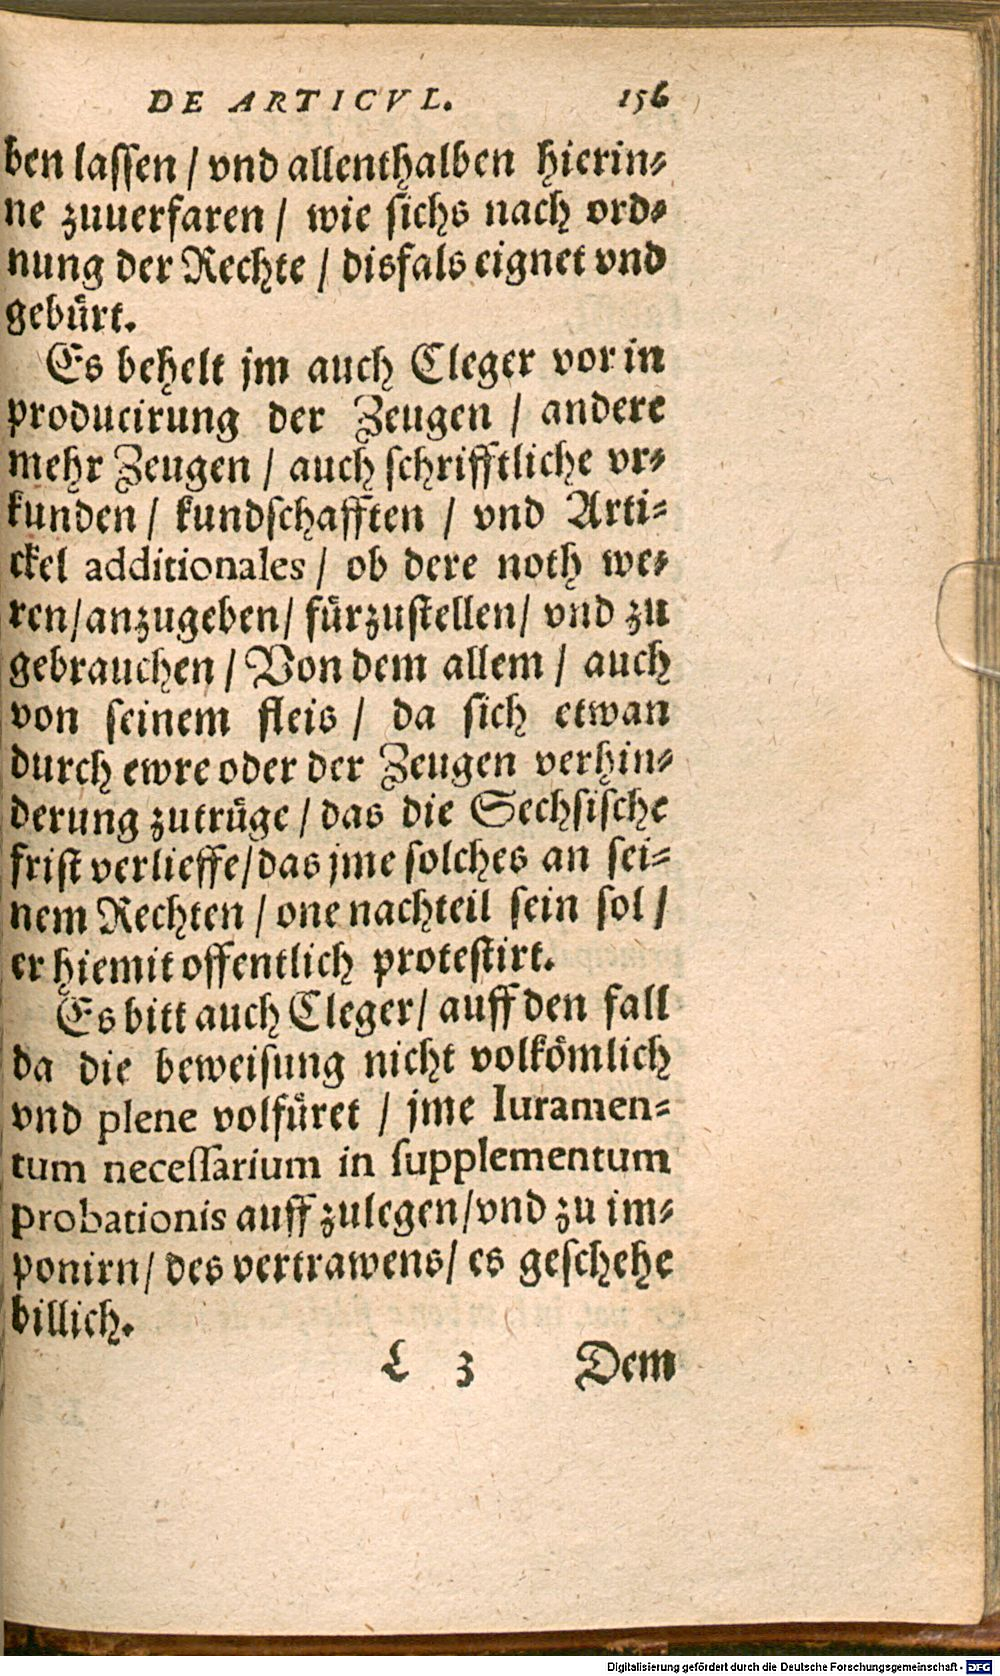 DE ARTICVL. 156
ben lassen / vnd allenthalben hierin-
ne zuuerfaren / wie sichs nach ord-
nung der Rechte / disfals eignet vnd
gebürt.
Es behelt jm auch Cleger vor in
producirung der Zeugen / andere
mehr Zeugen / auch schrifftliche vr-
kunden / kundschafften / vnd Arti-
ckel additionales / ob dere noth we-
ren / anzugeben / fürzustellen / vnd zu
gebrauchen / Von dem allem / auch
von seinem fleis / da sich etwan
durch ewre oder der Zeugen verhin-
derung zutrüge / das die Sechsische
frist verlieffe / das jme solches an sei-
nem Rechten / one nachteil sein sol /
er hiemit offentlich protestirt.
Es bitt auch Cleger / auff den fall
da die beweisung nicht volkömlich
vnd plene volfüret / jme Iuramen-
tum necessarium in supplementum
probationis auff zulegen / vnd zu im-
ponirn / des vertrawens / es geschehe
billich.
L 3 Dem
Digitalisierung gefördert durch die Deutsche Forschungsgemeinschaft - DFG